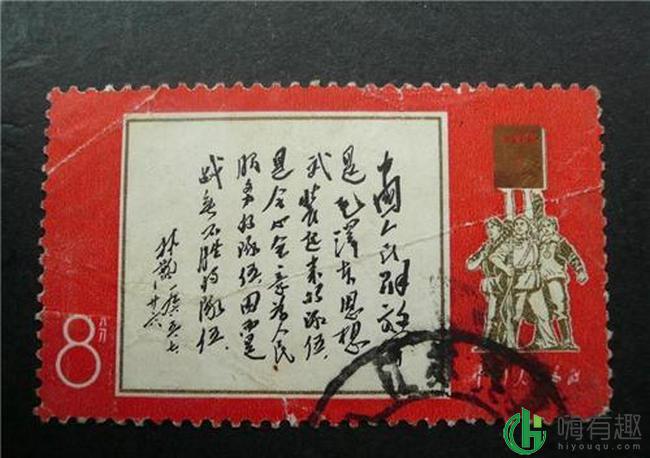 中國人民解放
是毛澤东思想
武装起来的隊伍,
是全心全意为人民
服务的隊伍因而是
战無不胜的隊伍.
林彪 一九六五、七、
廿六
8
分
中国人民邮政
江苏
嗨有趣
hiyouqu.com